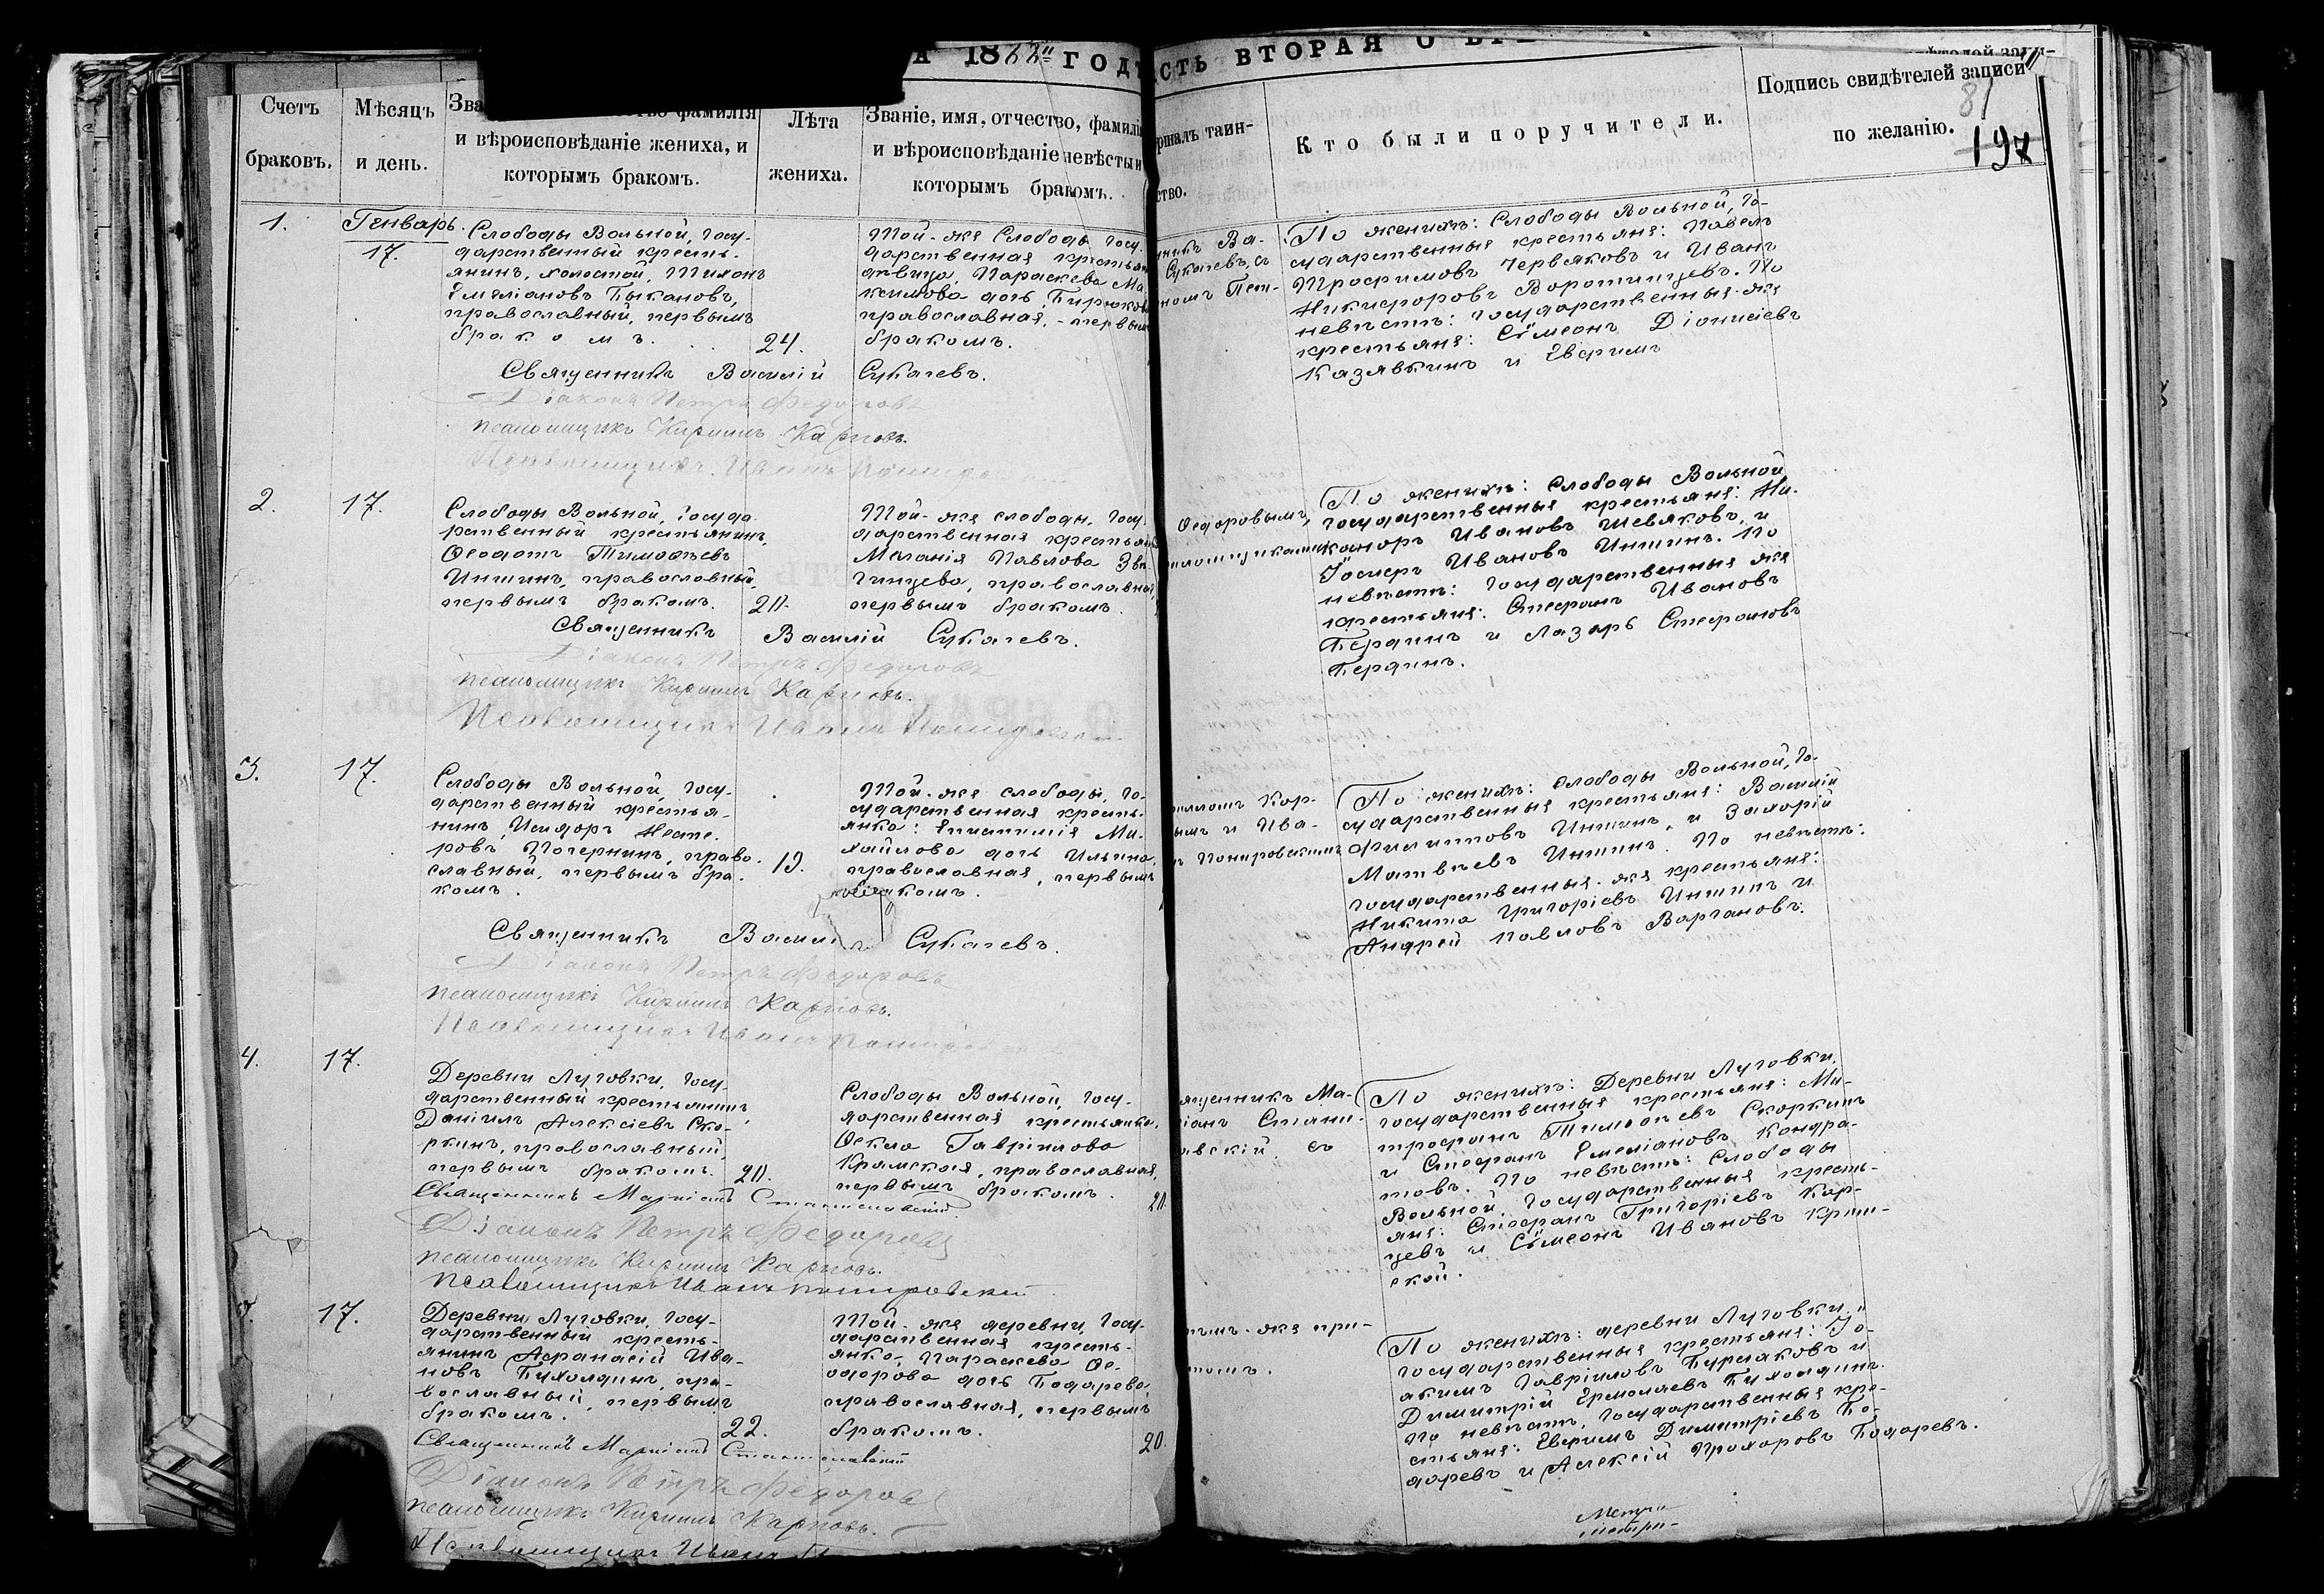 А 1882 ГОДЪ
СТЬ ВТОРАЯ О
Счетъ
браковъ.
Мѣсяцъ
и день.
Зва фамилія
и вѣроисповѣданіе жениха, и
которымъ бракомъ.
Лѣта
жениха.
Званіе, имя, отчество, фамилі
и вѣроисповѣданіе невѣсты и
которымъ бракомъ.
ршалъ таин-
ство.
Кто были поручители.
Подпись свидѣтелей записи
по желанію.
81
197
1.
Генварь.
17.
Слободы Вольной, госу-
дарственный кресть-
янинъ, холостой, Тихонъ
Емеліановъ Быкановъ,
православный, первымъ
бракомъ.
24.
Той-же Слободы госу-
дарственная крестьян
дѣвица, Параскева Ма-
ксимова дочь Бирюкова
православная, - первым
бракомъ.
никъ Ва-
Сукачевъ, съ
номъ Пет-
По женихѣ: Слободы Вольной, го-
сударственныя крестьяне: Павелъ
Трофимовъ Червяковъ и Иванъ
Никифоровъ Воротинцевъ. По
невѣстѣ: государственныя-же
крестьяне: Сѵмеонъ Діонисіевъ
Казявкинъ и Евфимъ
Священникъ Василій Сукачевъ.
Діаконъ Петръ Федоровъ
псаломщикъ Кириллъ Карповъ.
Псаломщикъ Иванъ
2.
17.
Слободы Вольной, госуда-
рственный крестьянинъ,
Ѳеодотъ Тимоѳеевъ
Иншинъ, православный,
первымъ бракомъ.
20.
Той-же слободы, госу-
дарственная крестьян
Меланія Павлова Зве-
гинцева, православная
первымъ бракомъ.
Ѳедоровымъ,
По женихѣ: Слободы Вольной
государственныя крестьяне: Ни-
каноръ Ивановъ Шевяковъ, и
Іосифъ Ивановъ Иншинъ. По
невѣстѣ: государственныя же
крестьяне: Стефанъ Ивановъ
Бердинъ и Лазарь Стефановъ
Бердинъ.
Священникъ Василій Сукачевъ.
Діаконъ Петръ Федоровъ
псаломщикъ Кириллъ Карповъ.
Псаломщикъ Иванъ
3.
17.
Слободы Вольной, госу-
дарственный крестья-
нинъ, Исидоръ Несте-
ровъ Почернинъ, право-
славный, первымъ бра-
комъ.
19.
Той-же слободы, го-
сударственная кресть-
янка: Епистимія Ми-
хайлова дочь Ильина,
православная, первымъ
бракомъ.
илломъ Кар-
ымъ и Ива-
Понировскимъ
По женихѣ: Слободы Вольной, го-
сударственныя крестьяне: Василій
Филиповъ Иншинъ, и Захарій
Матвѣевъ Иншинъ. По невѣстѣ:
государственныя-же крестьяне:
Никита Григоріевъ Иншинъ и
Андрей Павловъ Варгановъ.
Священникъ Васил Сукачевъ.
Діаконъ Петръ Федоровъ
псаломщикъ Кириллъ Карповъ.
Псаломщикъ Иванъ
4.
17.
Деревни Луговки, госу-
дарственный крестьянинъ,
Даніилъ Алексіевъ Ско-
ркинъ, православный,
первымъ бракомъ.
20.
Слободы Вольной, госу-
дарственная крестьянка,
Ѳекла Гавріилова
Крамская, православная,
первымъ бракомъ.
20.
ященникъ Ма-
іанъ Стани-
авскій съ
По женихѣ: Деревни Луговки,
государственныя крестьяне: Ми-
трофанъ Тимоѳеевъ Скоркинъ
и Стефанъ Емеліановъ Кондра-
товъ. По невѣстѣ: Слободы
Вольной, государственныя кресть-
яне: Стефанъ Григоріевъ Кар-
цевъ и Сѵмеонъ Ивановъ Крам-
ской.
Священникъ Маркіанъ Станиславскій.
Діаконъ Петръ Федоровъ
псаломщикъ Кириллъ Карповъ.
Псаломщикъ Иванъ Понировскій
17.
Деревни Луговки, госу-
дарственный кресть-
янинъ Афанасій Ива-
новъ Бихолдинъ, пра-
вославный, первымъ
бракомъ.
22.
Той-же деревни, госу-
дарственная кресть-
янка, Параскева Ѳе-
одорова дочь Бодарева,
православная, первымъ
бракомъ.
20.
тѣмъ-же при-
томъ.
По женихѣ: деревни Луговки,
государственныя крестьяне: Іо-
акимъ Гавріиловъ Бурмаковъ и
Димитрій Ермолаевъ Бихолдинъ.
По невѣстѣ, государственныя кре-
стьяне: Евфимъ Димитріевъ Бо-
даревъ и Алексій Прохоровъ Бодаревъ.
Священникъ Маркіанъ Станиславскій
Діаконъ Петръ Федоровъ
псаломщикъ Кириллъ Карповъ.
Псаломщикъ Иванъ
Метри